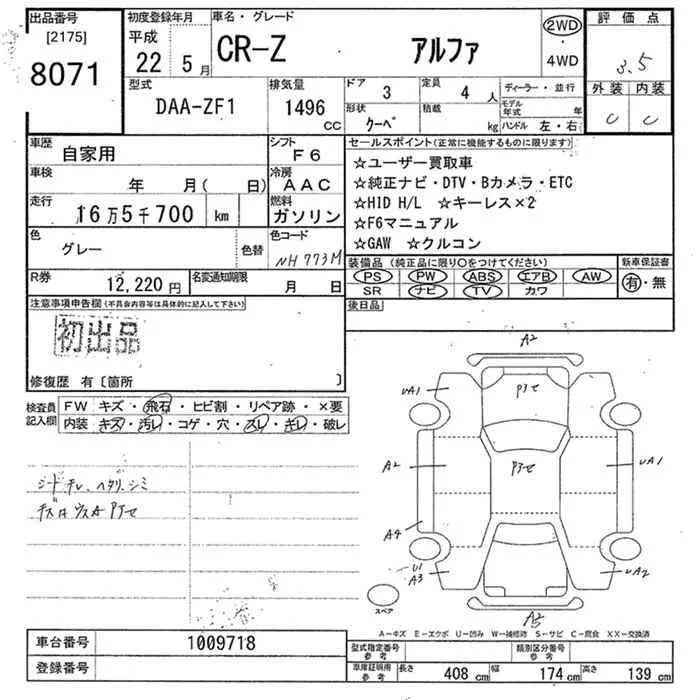 出品番号
[2175]
8071
初度登録年月
平成
22 5月
車名・グレード
CR-Z アルファ
2WD
・
4WD
評価点
3.5
外装 内装
C C
型式
DAA-ZF1
排気量
1496
CC
ドア 3
形状 クーペ
定員 4人
積載 kg
ディーラー・並行
モデル年式 年
ハンドル 左・右
車歴
自家用
シフト
F6
車検
年 月( 日)
冷房
AAC
走行
16万5千700 km
燃料
ガソリン
色
グレー
色替
色コード
NH773M
R券
12,220円
名変通知期限
月 日
セールスポイント(正常に機能するものに限ります)
☆ユーザー買取車
☆純正ナビ・DTV・Bカメラ・ETC
☆HID H/L ☆キーレス×2
☆F6マニュアル
☆GAW ☆クルコン
装備品(純正品に限り○をつけてください)
新車保証書
PS PW ABS エアB AW
SR ナビ TV カワ
有・無
後日品
注意事項申告欄(不具合内容等は具体的に記入して下さい)
初出品
修復歴 有〔箇所 〕
検査員
記入欄
FW キズ・飛石・ヒビ割・リペア跡・×要
内装 キズ・汚レ・コゲ・穴・スレ・キレ・破レ
シートチレ、ヘタリ、シミ
A2
UA1
Pアせ
A2
Pアせ
UA1
A4
U1
A3
UA2
A2
スペア
A-キズ E-エクボ U-凹み W-補修跡 S-サビ C-腐食 XX-交換済
車台番号
1009718
登録番号
型式指定番号
参考
類別区分番号
参考
車庫証明用
参考
長さ 408cm 幅 174cm 高さ 139cm